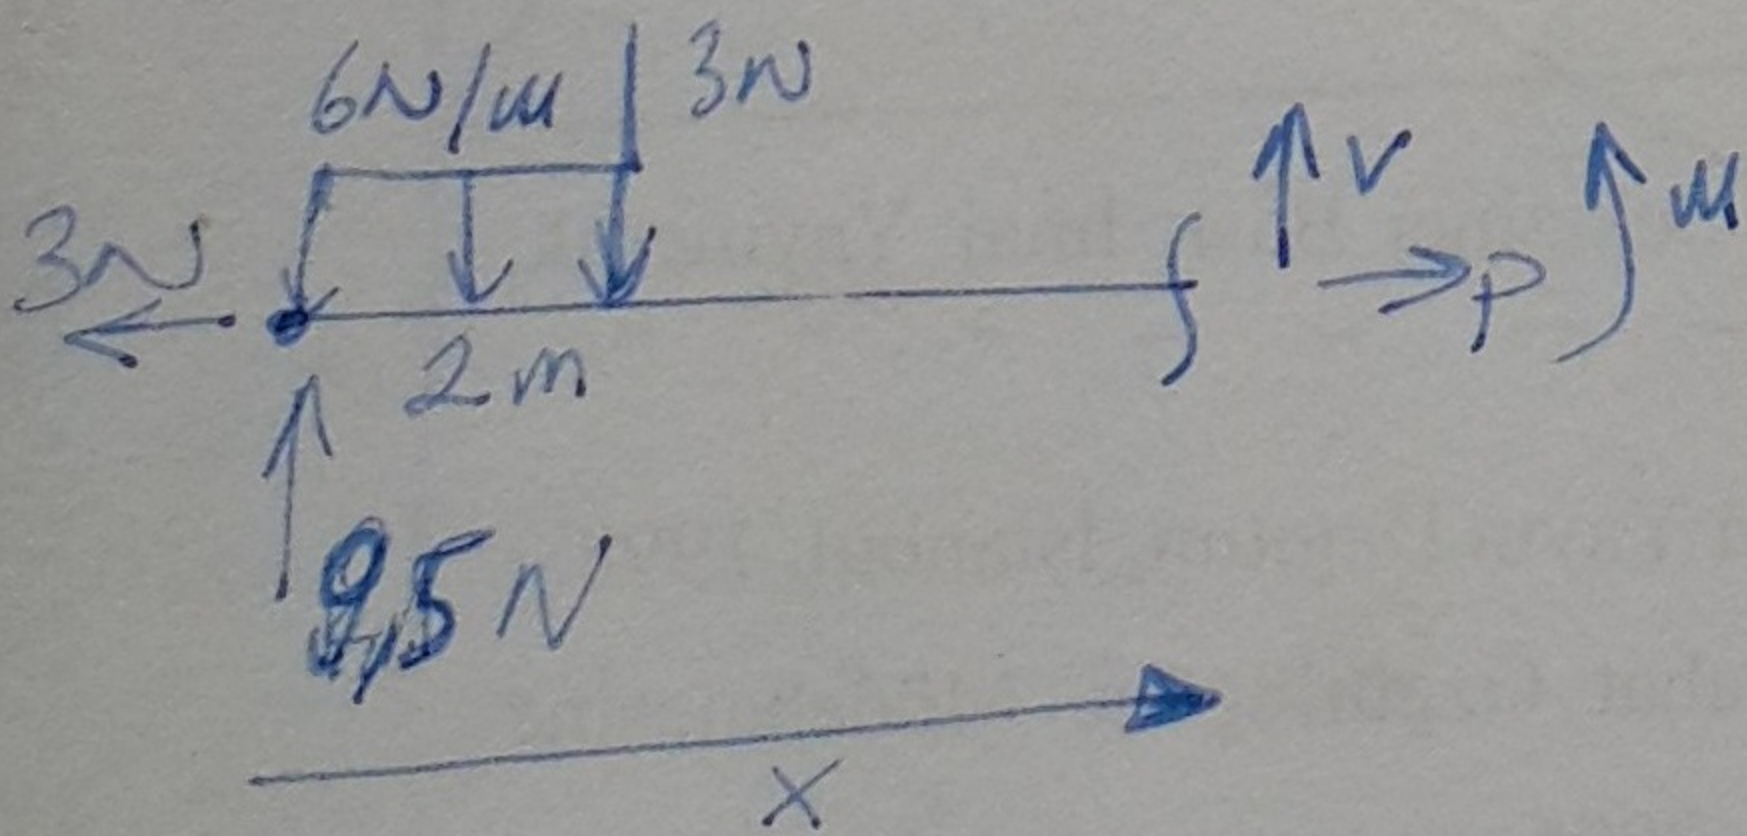 6N/m 3N
3N V M
P
2m
9,5 N
X